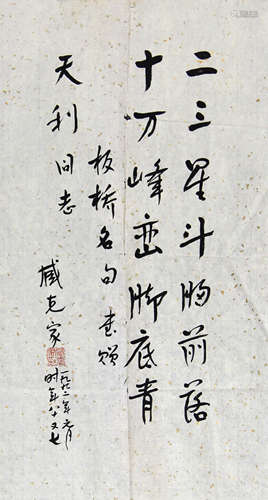 二三星斗胸前落
十万峰峦脚底青
板桥名句 书赠
天利同志
臧克家
一九九二年元月
时年八又七